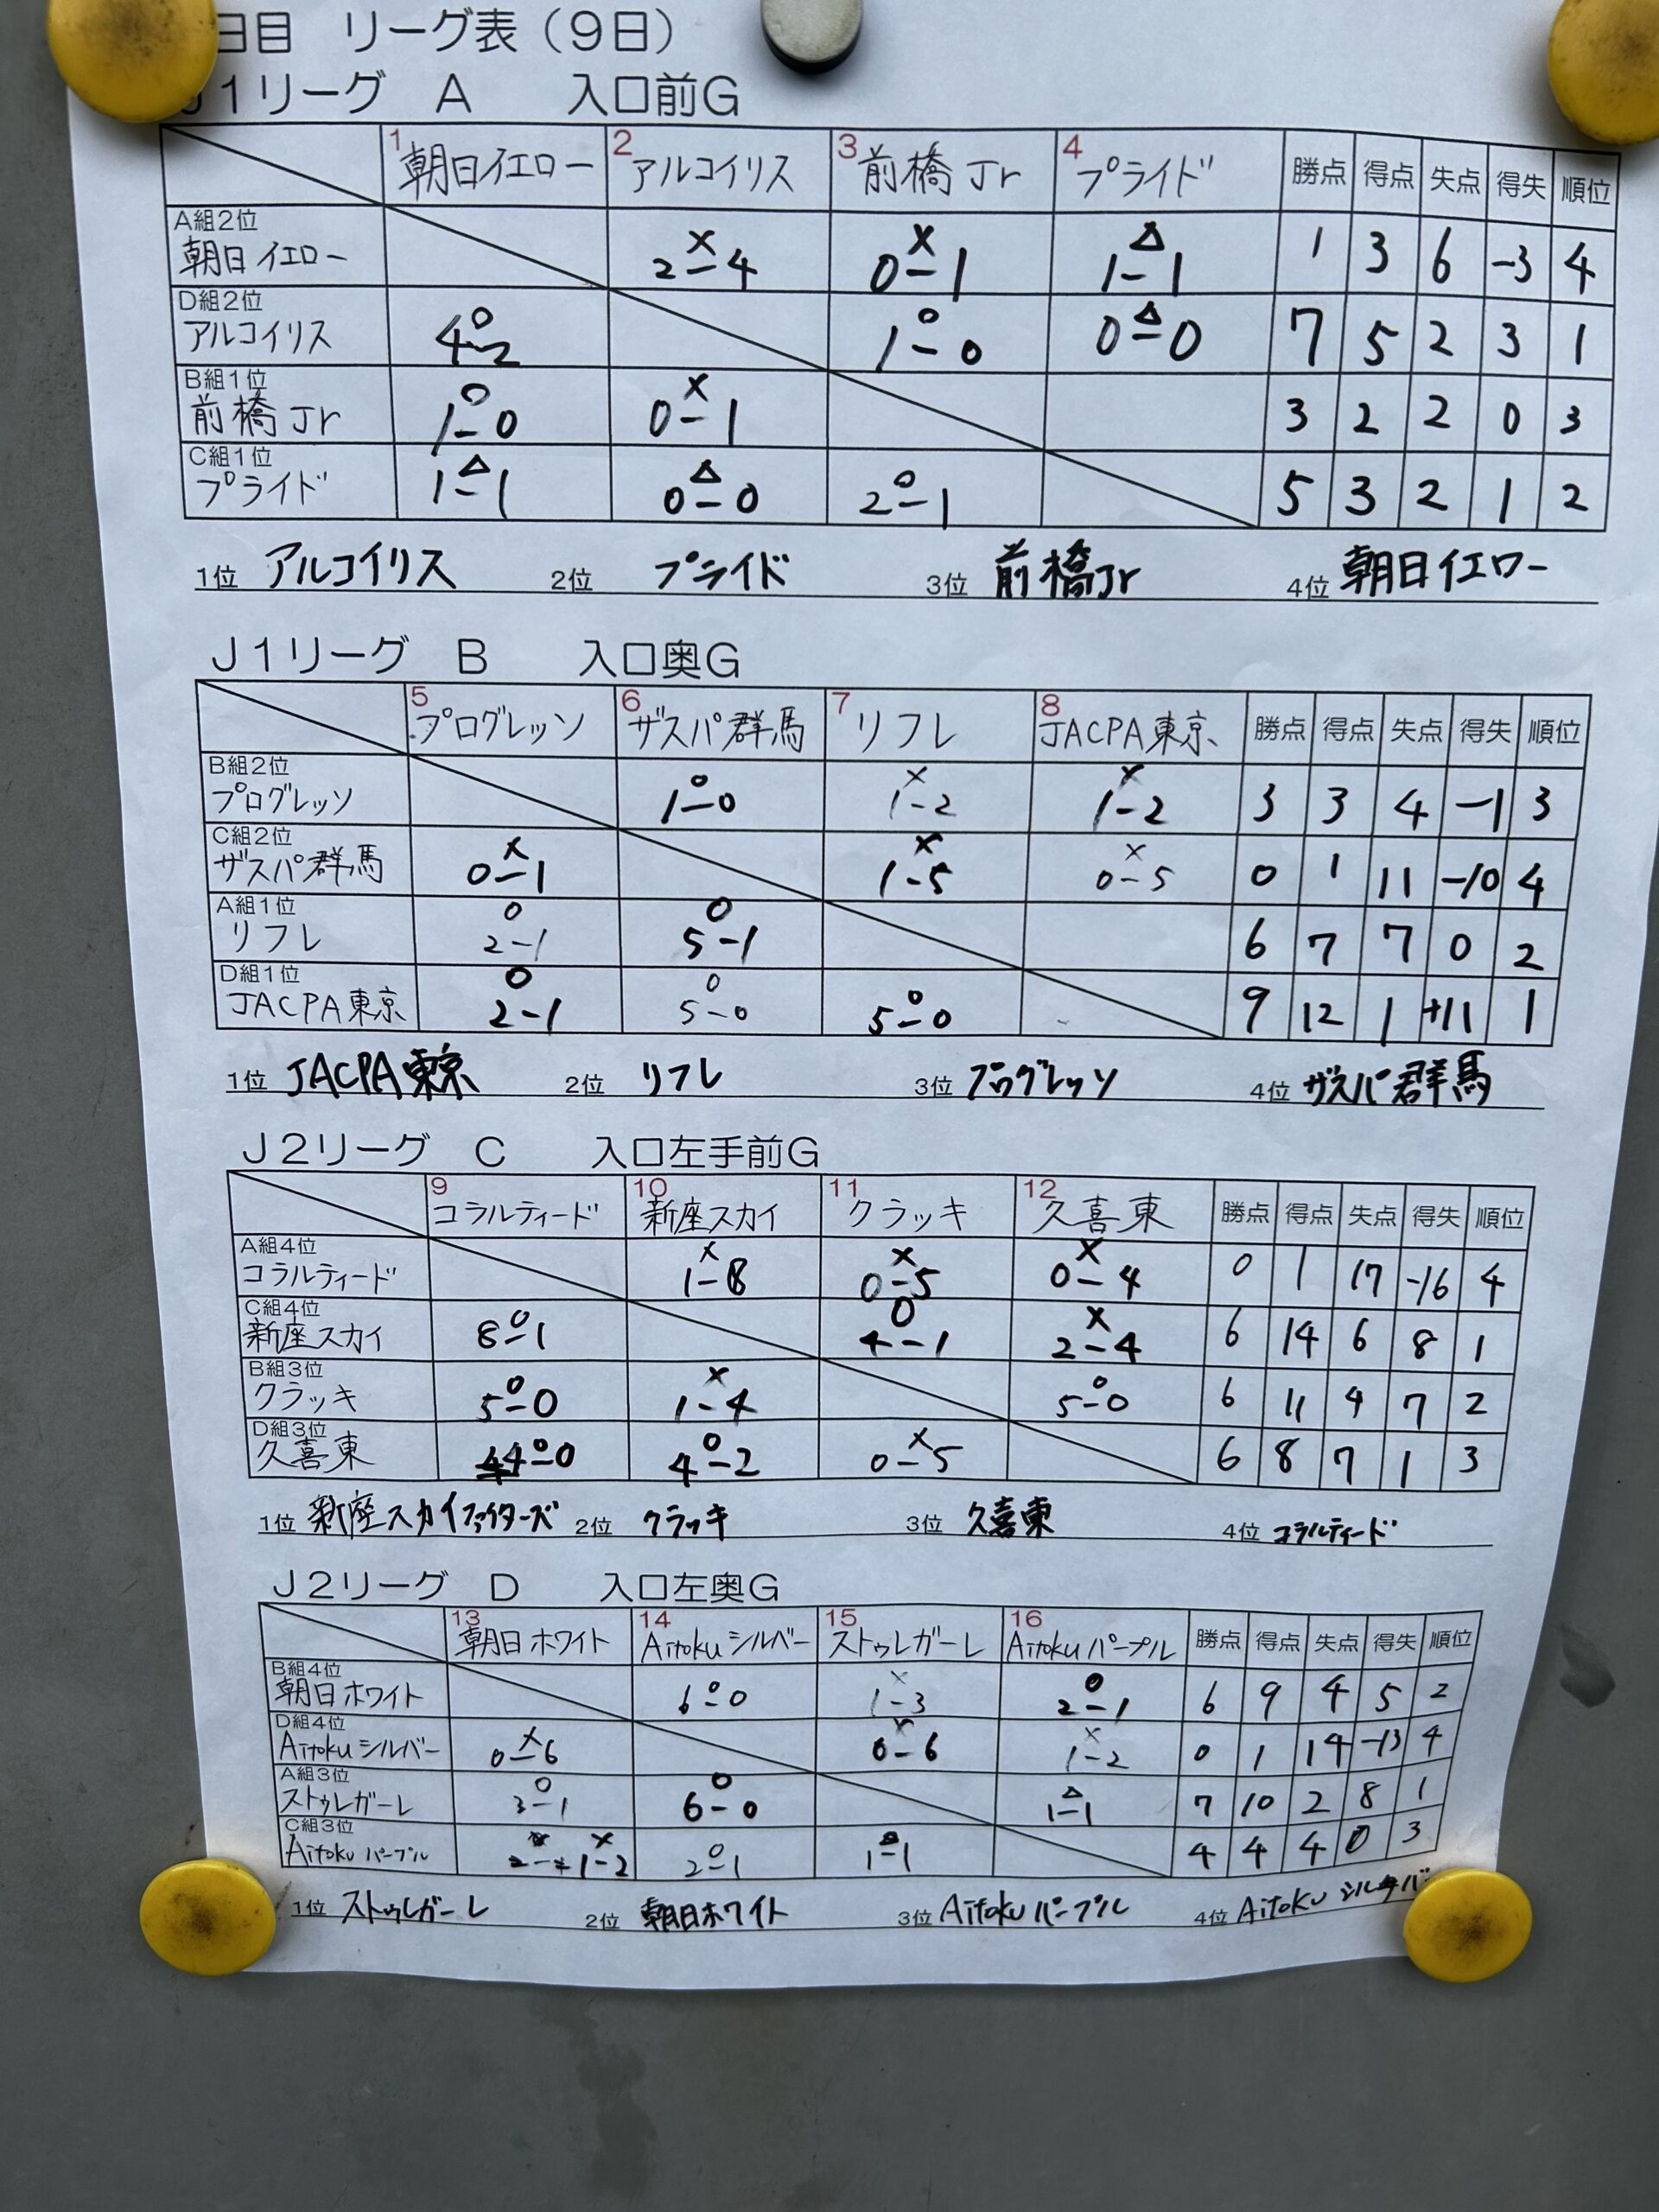 日目 リーグ表（9日）
J1リーグ A 入口前G
1 朝日イエロー 2 アルコイリス 3 前橋Jr 4 プライド 勝点 得点 失点 得失 順位
A組2位
朝日イエロー × 2-4 × 0-1 △ 1-1 1 3 6 -3 4
D組2位
アルコイリス ○ 4-2 ○ 1-0 △ 0-0 7 5 2 3 1
B組1位
前橋Jr ○ 1-0 × 0-1 3 2 2 0 3
C組1位
プライド △ 1-1 △ 0-0 ○ 2-1 5 3 2 1 2
1位 アルコイリス 2位 プライド 3位 前橋Jr 4位 朝日イエロー
J1リーグ B 入口奥G
5 プログレッソ 6 ザスパ群馬 7 リフレ 8 JACPA東京 勝点 得点 失点 得失 順位
B組2位
プログレッソ ○ 1-0 × 1-2 × 1-2 3 3 4 -1 3
C組2位
ザスパ群馬 × 0-1 × 1-5 × 0-5 0 1 11 -10 4
A組1位
リフレ ○ 2-1 ○ 5-1 6 7 7 0 2
D組1位
JACPA東京 ○ 2-1 ○ 5-0 ○ 5-0 9 12 1 +11 1
1位 JACPA東京 2位 リフレ 3位 プログレッソ 4位 ザスパ群馬
J2リーグ C 入口左手前G
9 コラルティード 10 新座スカイ 11 クラッキ 12 久喜東 勝点 得点 失点 得失 順位
A組4位
コラルティード × 1-8 × 0-5 × 0-4 0 1 17 -16 4
C組4位
新座スカイ ○ 8-1 ○ 4-1 × 2-4 6 14 6 8 1
B組3位
クラッキ ○ 5-0 × 1-4 ○ 5-0 6 11 4 7 2
D組3位
久喜東 ○ 4-0 ○ 4-2 × 0-5 6 8 7 1 3
1位 新座スカイファイターズ 2位 クラッキ 3位 久喜東 4位 コラルティード
J2リーグ D 入口左奥G
13 朝日ホワイト 14 Aitokuシルバー 15 ストゥレガーレ 16 Aitokuパープル 勝点 得点 失点 得失 順位
B組4位
朝日ホワイト ○ 6-0 × 1-3 ○ 2-1 6 9 4 5 2
D組4位
Aitokuシルバー × 0-6 × 0-6 × 1-2 0 1 14 -13 4
A組3位
ストゥレガーレ ○ 3-1 ○ 6-0 △ 1-1 7 10 2 8 1
C組3位
Aitokuパープル × 1-2 ○ 2-1 △ 1-1 4 4 4 0 3
1位 ストゥレガーレ 2位 朝日ホワイト 3位 Aitokuパープル 4位 Aitoku シルバ